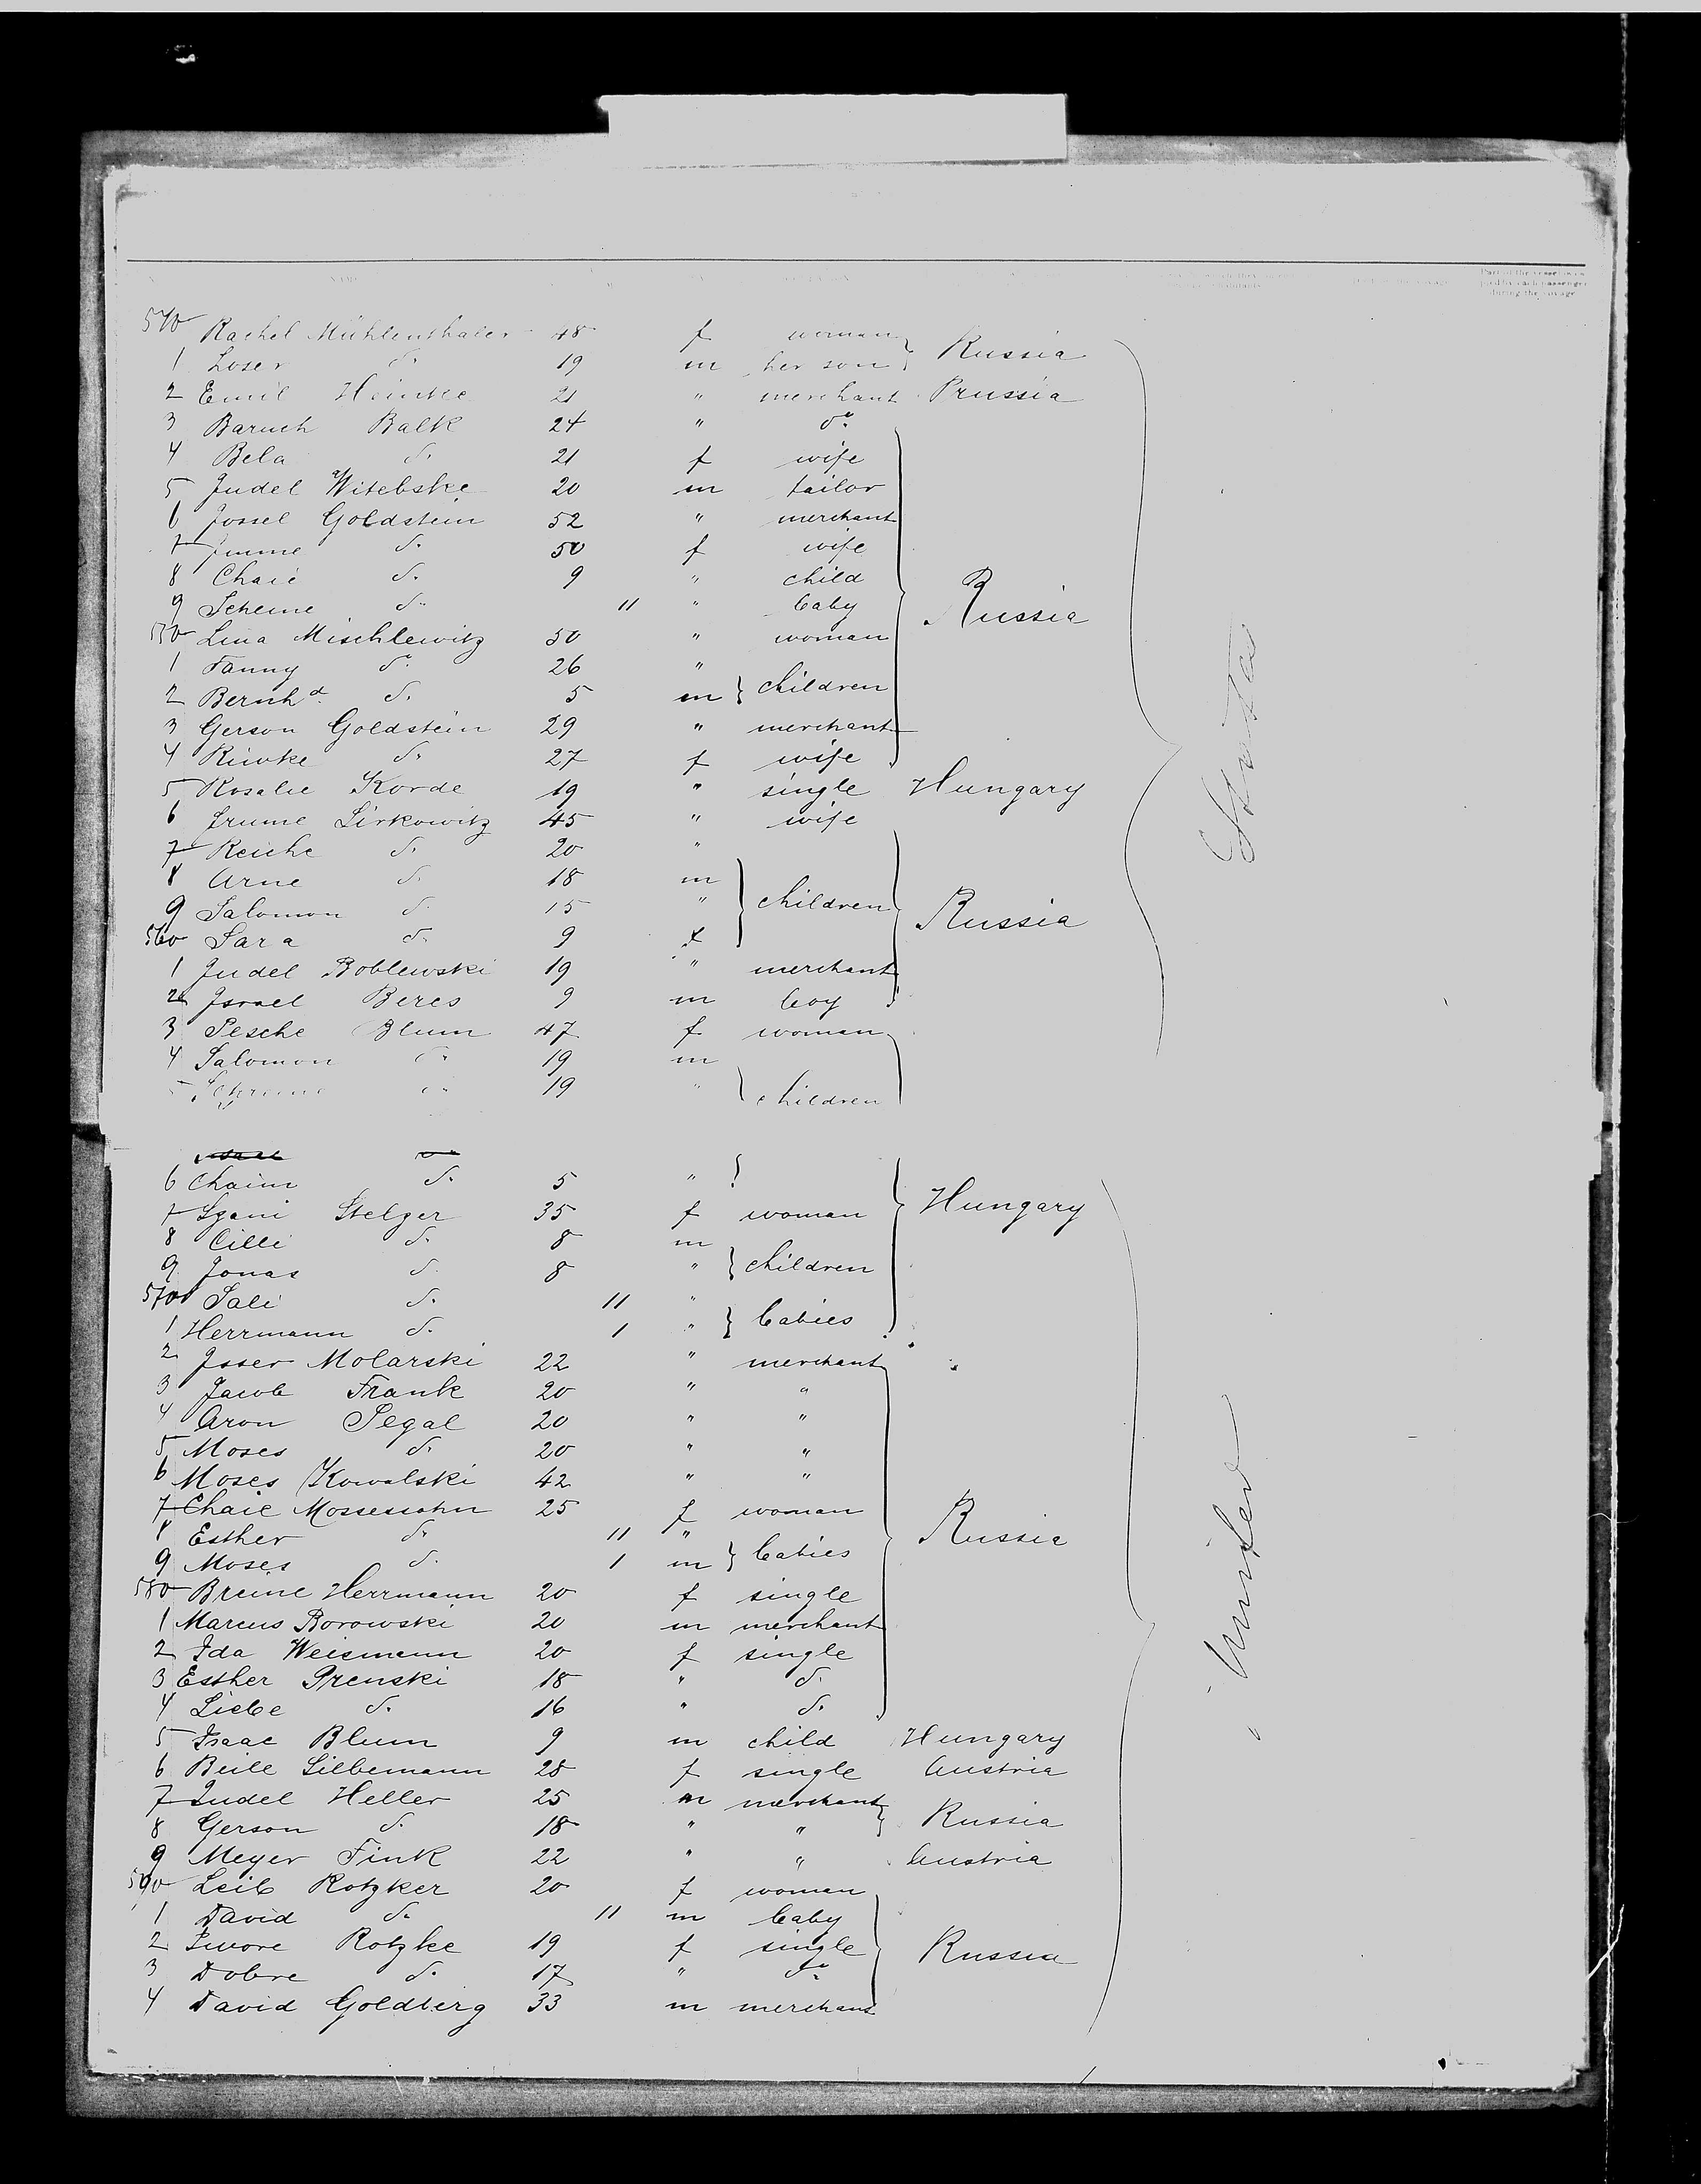 Part of the vessel occupied by each passenger during the voyage
540 Rachel Mühlenthaler 48 f woman Russia
1 Loser do. 19 m her son
2 Emil Heinke 21 " merchant Prussia
3 Baruch Balk 24 " do.
4 Bela do. 21 f wife
5 Judel Witebske 20 m tailor
6 Jossel Goldstein 52 " merchant
7 do. 50 f wife
8 Chaie do. 9 " child
9 Scheine do. 11 " baby Russia
550 Lina Mischlewitz 50 " woman
1 Fanny do. 26 "
2 Bernhd. do. 5 m children
3 Gerson Goldstein 29 " merchant
4 Riwke do. 27 f wife
5 Rosalie Korde 19 " single Hungary
6 Lirkowitz 45 " wife
7 Reiche do. 20 "
8 Arne do. 18 m
9 Salomon do. 15 " children Russia
560 Sara do. 9 f
1 Judel Boblewski 19 " merchant
2 Israel Beres 9 m boy
3 Pesche Blum 47 f woman
4 Salomon do. 19 m
5 do. 19 " children
6 Chaim do. 5 "
7 Stelzer 35 f woman Hungary
8 Cilli do. 8 m
9 Jonas do. 8 " children
570 Sali do. 11 "
1 Herrmann do. 1 " babies
2 Isser Molarski 22 " merchant
3 Jacob Frank 20 " "
4 Aron Segal 20 " "
5 Moses do. 20 " "
6 Moses Kowalski 42 " "
7 Chaie Mossessohn 25 f woman
8 Esther do. 11 " Russia
9 Moses do. 1 m babies
580 Breine Herrmann 20 f single
1 Marcus Borowski 20 m merchant
2 Ida Weismann 20 f single
3 Esther Prenski 18 " do.
4 Liebe do. 16 " do.
5 Isaac Blum 9 m child Hungary
6 Beile Silbemann 28 f single Austria
7 Judel Heller 25 m merchant
8 Gerson do. 18 " " Russia
9 Meyer Fink 22 " " Austria
590 Leib Rotzker 20 f woman
1 David do. 11 m baby
2 Rotzke 19 f single Russia
3 Dobre do. 17 " do.
4 David Goldberg 33 m merchant
United
States